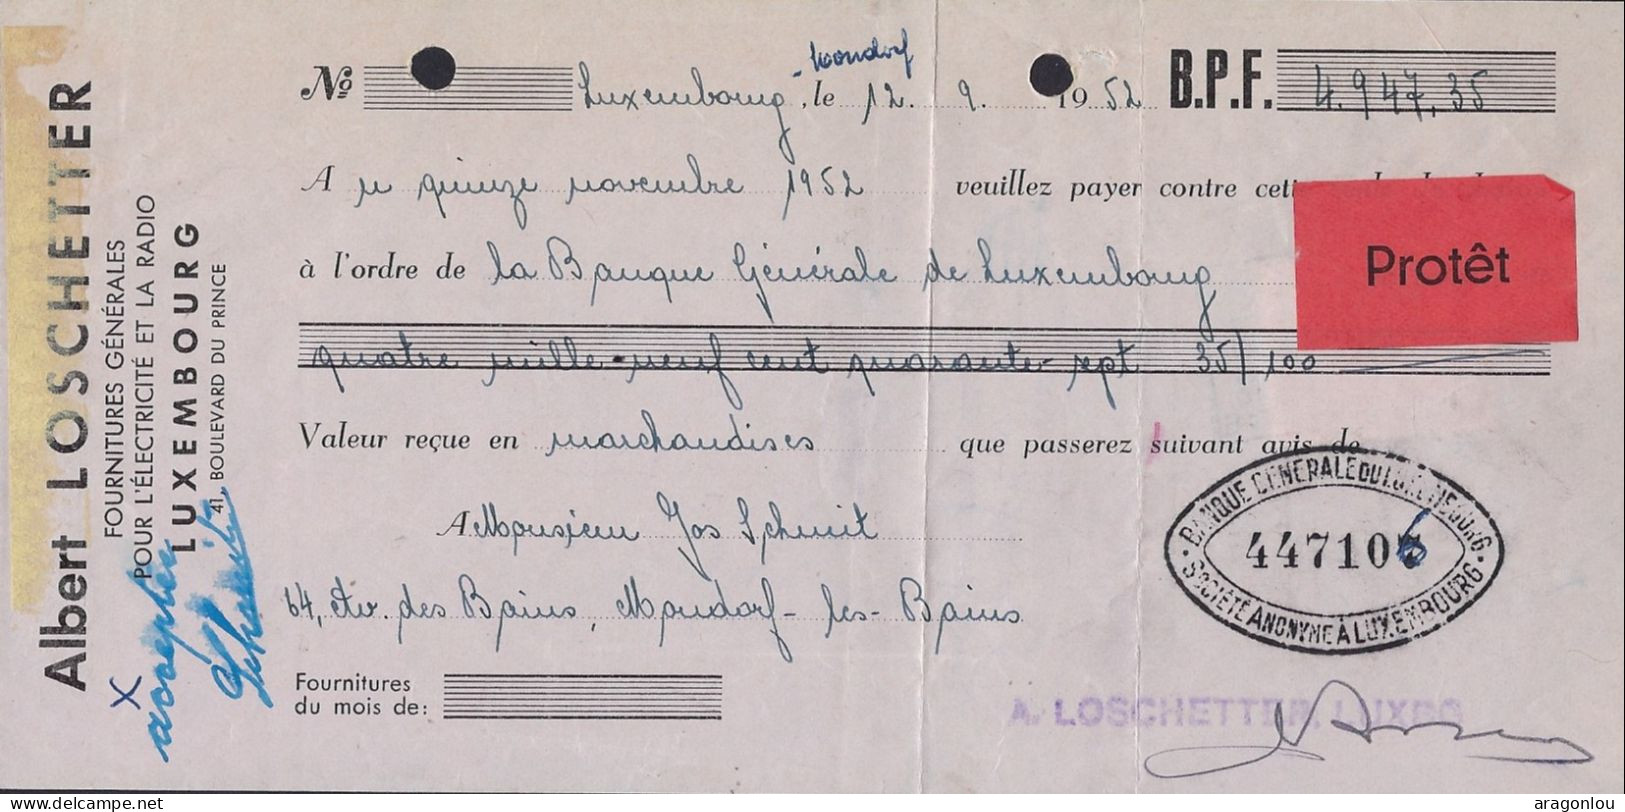 Albert LOSCHETTER
FOURNITURES GÉNÉRALES
POUR L'ÉLECTRICITÉ ET LA RADIO
LUXEMBOURG
41, BOULEVARD DU PRINCE
Nº Luxembourg, le 12. 9. 1952 B.P.F. 4.947,35
Au quinze novembre 1952 veuillez payer contre
à l'ordre de la Banque Générale de Luxembourg
Protêt
quatre mille neuf cent quarante-sept 35/100
Valeur reçue en marchandises que passerez suivant avis de
BANQUE GÉNÉRALE DU LUXEMBOURG
447106
SOCIÉTÉ ANONYME À LUXEMBOURG
A Monsieur Jos Schmit
64, Av. des Bains, Mondorf-les-Bains
Fournitures
du mois de:
A. LOSCHETTER, LUXBG
X
aragonlou